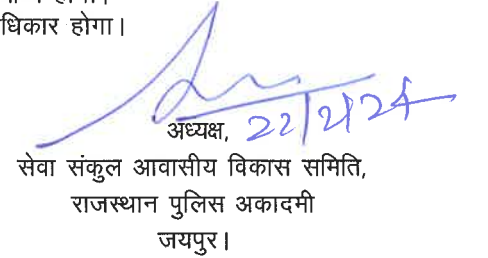 धिकार होगा।
अध्यक्ष, 22/2/24
सेवा संकुल आवासीय विकास समिति,
राजस्थान पुलिस अकादमी
जयपुर।